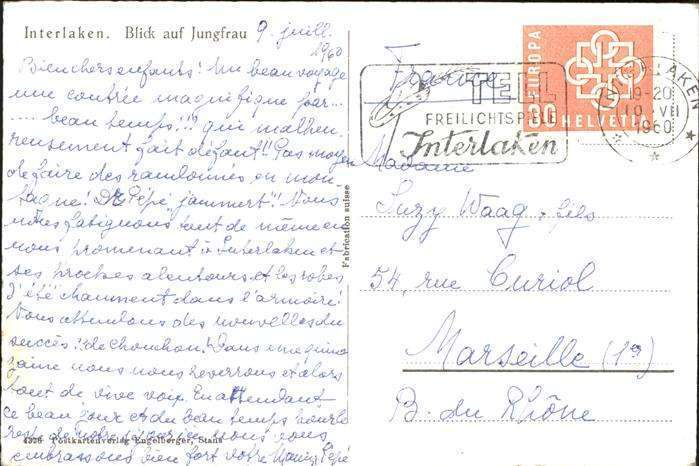 Interlaken. Blick auf Jungfrau
9. juill. 1960
Bien chers enfants! Un beau voyage
une contrée magnifique par...
....... beau temps!!? qui malheu-
reusement fait défaut!! Pas moyen
de faire des randonnées en mon-
tagne! Pépé jammert"! Nous
nous fatiguons tout de même en
nous promenant à Interlaken et
ses proches alentours, et les robes
d'été chament dans l'armoire!
Nous attendons des nouvelles du
succès! de Chouchou! Dans une quin-
zaine nous nous reverrons et alors
tout de vive voix. En attendant
ce beau jour et du beau temps pour le
reste de notre nous vous
embrassons bien fort votre Pépé
4376 Postkartenverlag Engelberger, Stans
Fabrication suisse
France
TELL
FREILICHTSPIELE
Interlaken
EUROPA
20 HELVETIA
INTERLAKEN
19-20
10. VII
1960
Madame
Suzy Waag & fils
54, rue Curiol
Marseille (1er)
B. du Rhône